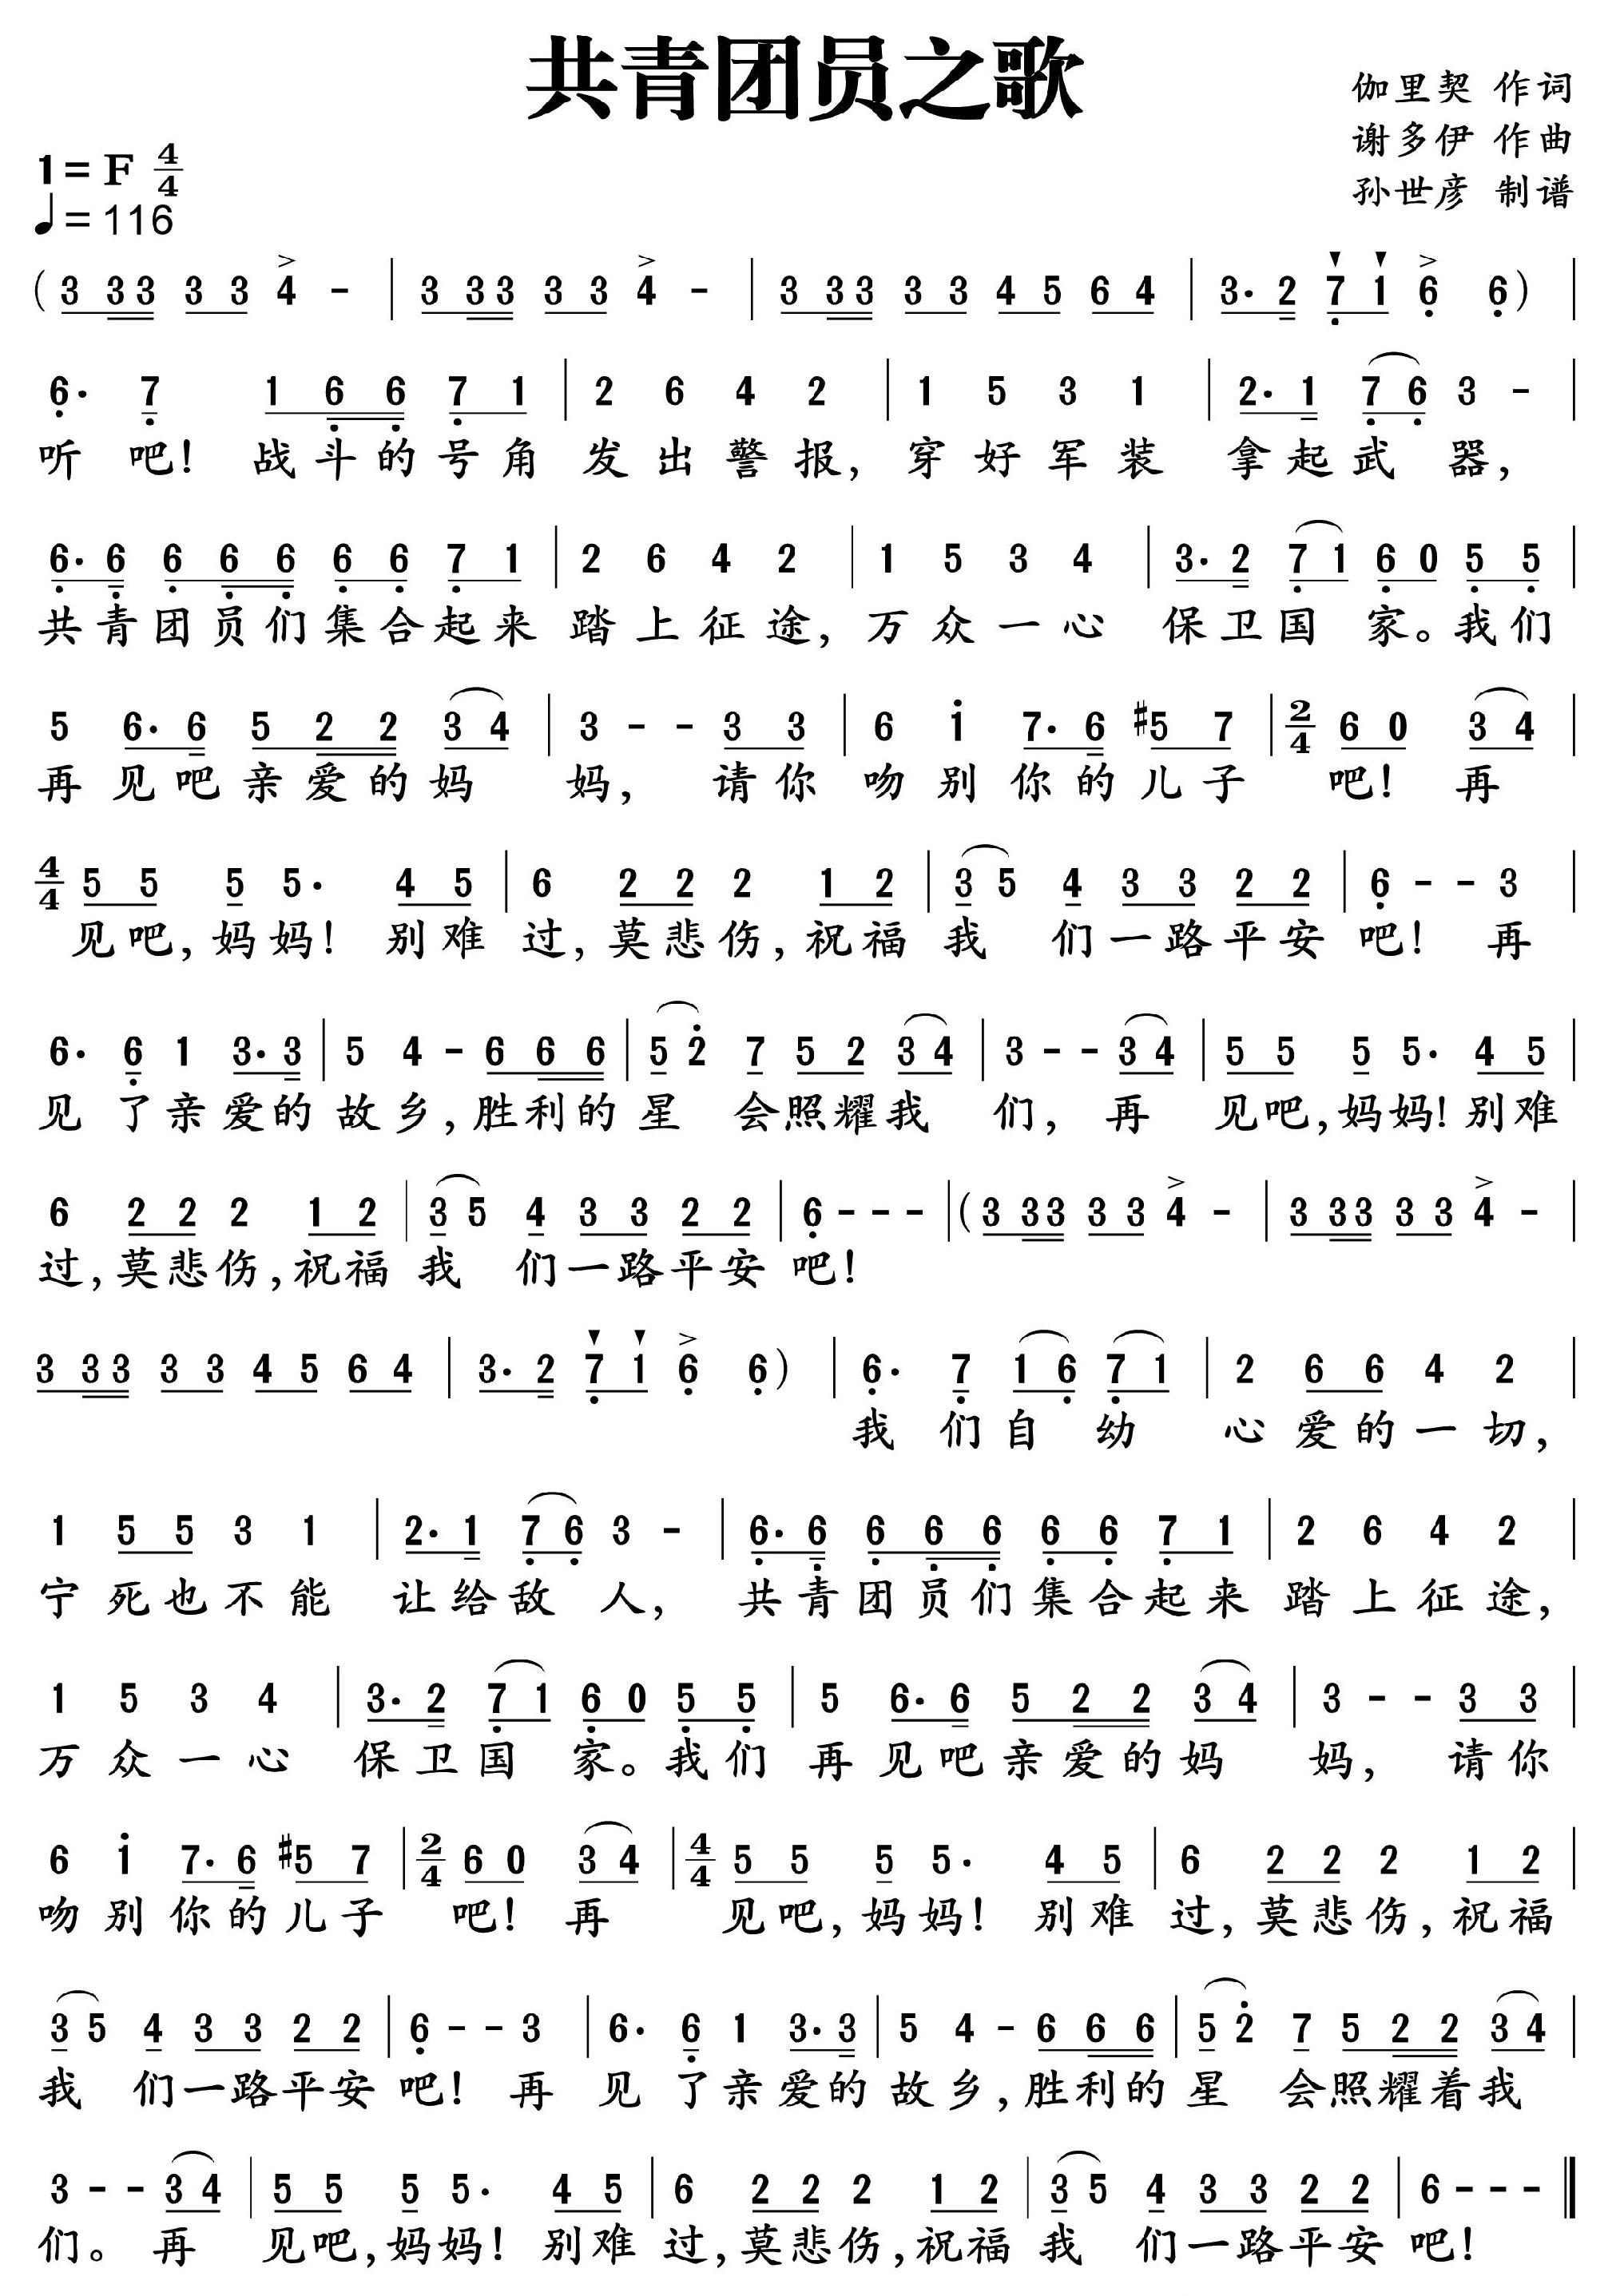 共青团员之歌
伽里契 作词
谢多伊 作曲
孙世彦 制谱
1=F 4/4
♩=116
( 3 33 3 3 4 - | 3 33 3 3 4 - | 3 33 3 3 4 5 6 4 | 3· 2 7 1 6 6 ) |
6· 7 1 6 6 7 1 | 2 6 4 2 | 1 5 3 1 | 2· 1 7 6 3 - |
听 吧! 战斗的号角 发出警报, 穿好军装 拿起武 器,
6· 6 6 6 6 6 6 7 1 | 2 6 4 2 | 1 5 3 4 | 3· 2 7 1 6 0 5 5 |
共青团员们集合起来 踏上征途, 万众一心 保卫国 家。我们
5 6· 6 5 2 2 3 4 | 3 - - 3 3 | 6 i 7· 6 #5 7 | 2/4 6 0 3 4 |
再 见吧亲爱的妈 妈, 请你 吻别你的儿子 吧! 再
4/4 5 5 5 5· 4 5 | 6 2 2 2 1 2 | 3 5 4 3 3 2 2 | 6 - - 3 |
见吧,妈妈! 别难 过,莫悲伤,祝福 我 们一路平安 吧! 再
6· 6 1 3· 3 | 5 4 - 6 6 6 | 5 2 7 5 2 3 4 | 3 - - 3 4 | 5 5 5 5· 4 5 |
见 了亲爱的 故乡,胜利的 星 会照耀我 们, 再 见吧,妈妈! 别难
6 2 2 2 1 2 | 3 5 4 3 3 2 2 | 6 - - - | ( 3 33 3 3 4 - | 3 33 3 3 4 - |
过,莫悲伤,祝福 我 们一路平安 吧!
3 33 3 3 4 5 6 4 | 3· 2 7 1 6 6 ) | 6· 7 1 6 7 1 | 2 6 6 4 2 |
我 们自 幼 心爱的一切,
1 5 5 3 1 | 2· 1 7 6 3 - | 6· 6 6 6 6 6 6 7 1 | 2 6 4 2 |
宁死也不能 让给敌 人, 共青团员们集合起来 踏上征途,
1 5 3 4 | 3· 2 7 1 6 0 5 5 | 5 6· 6 5 2 2 3 4 | 3 - - 3 3 |
万众一心 保卫国 家。我们 再见吧亲爱的妈 妈, 请你
6 i 7· 6 #5 7 | 2/4 6 0 3 4 | 4/4 5 5 5 5· 4 5 | 6 2 2 2 1 2 |
吻别你的儿子 吧! 再 见吧,妈妈! 别难 过,莫悲伤,祝福
3 5 4 3 3 2 2 | 6 - - 3 | 6· 6 1 3· 3 | 5 4 - 6 6 6 | 5 2 7 5 2 2 3 4 |
我 们一路平安 吧! 再 见 了亲爱的 故乡,胜利的 星 会照耀着我
3 - - 3 4 | 5 5 5 5· 4 5 | 6 2 2 2 1 2 | 3 5 4 3 3 2 2 | 6 - - - ‖
们。 再 见吧,妈妈! 别难 过,莫悲伤,祝福 我 们一路平安 吧!